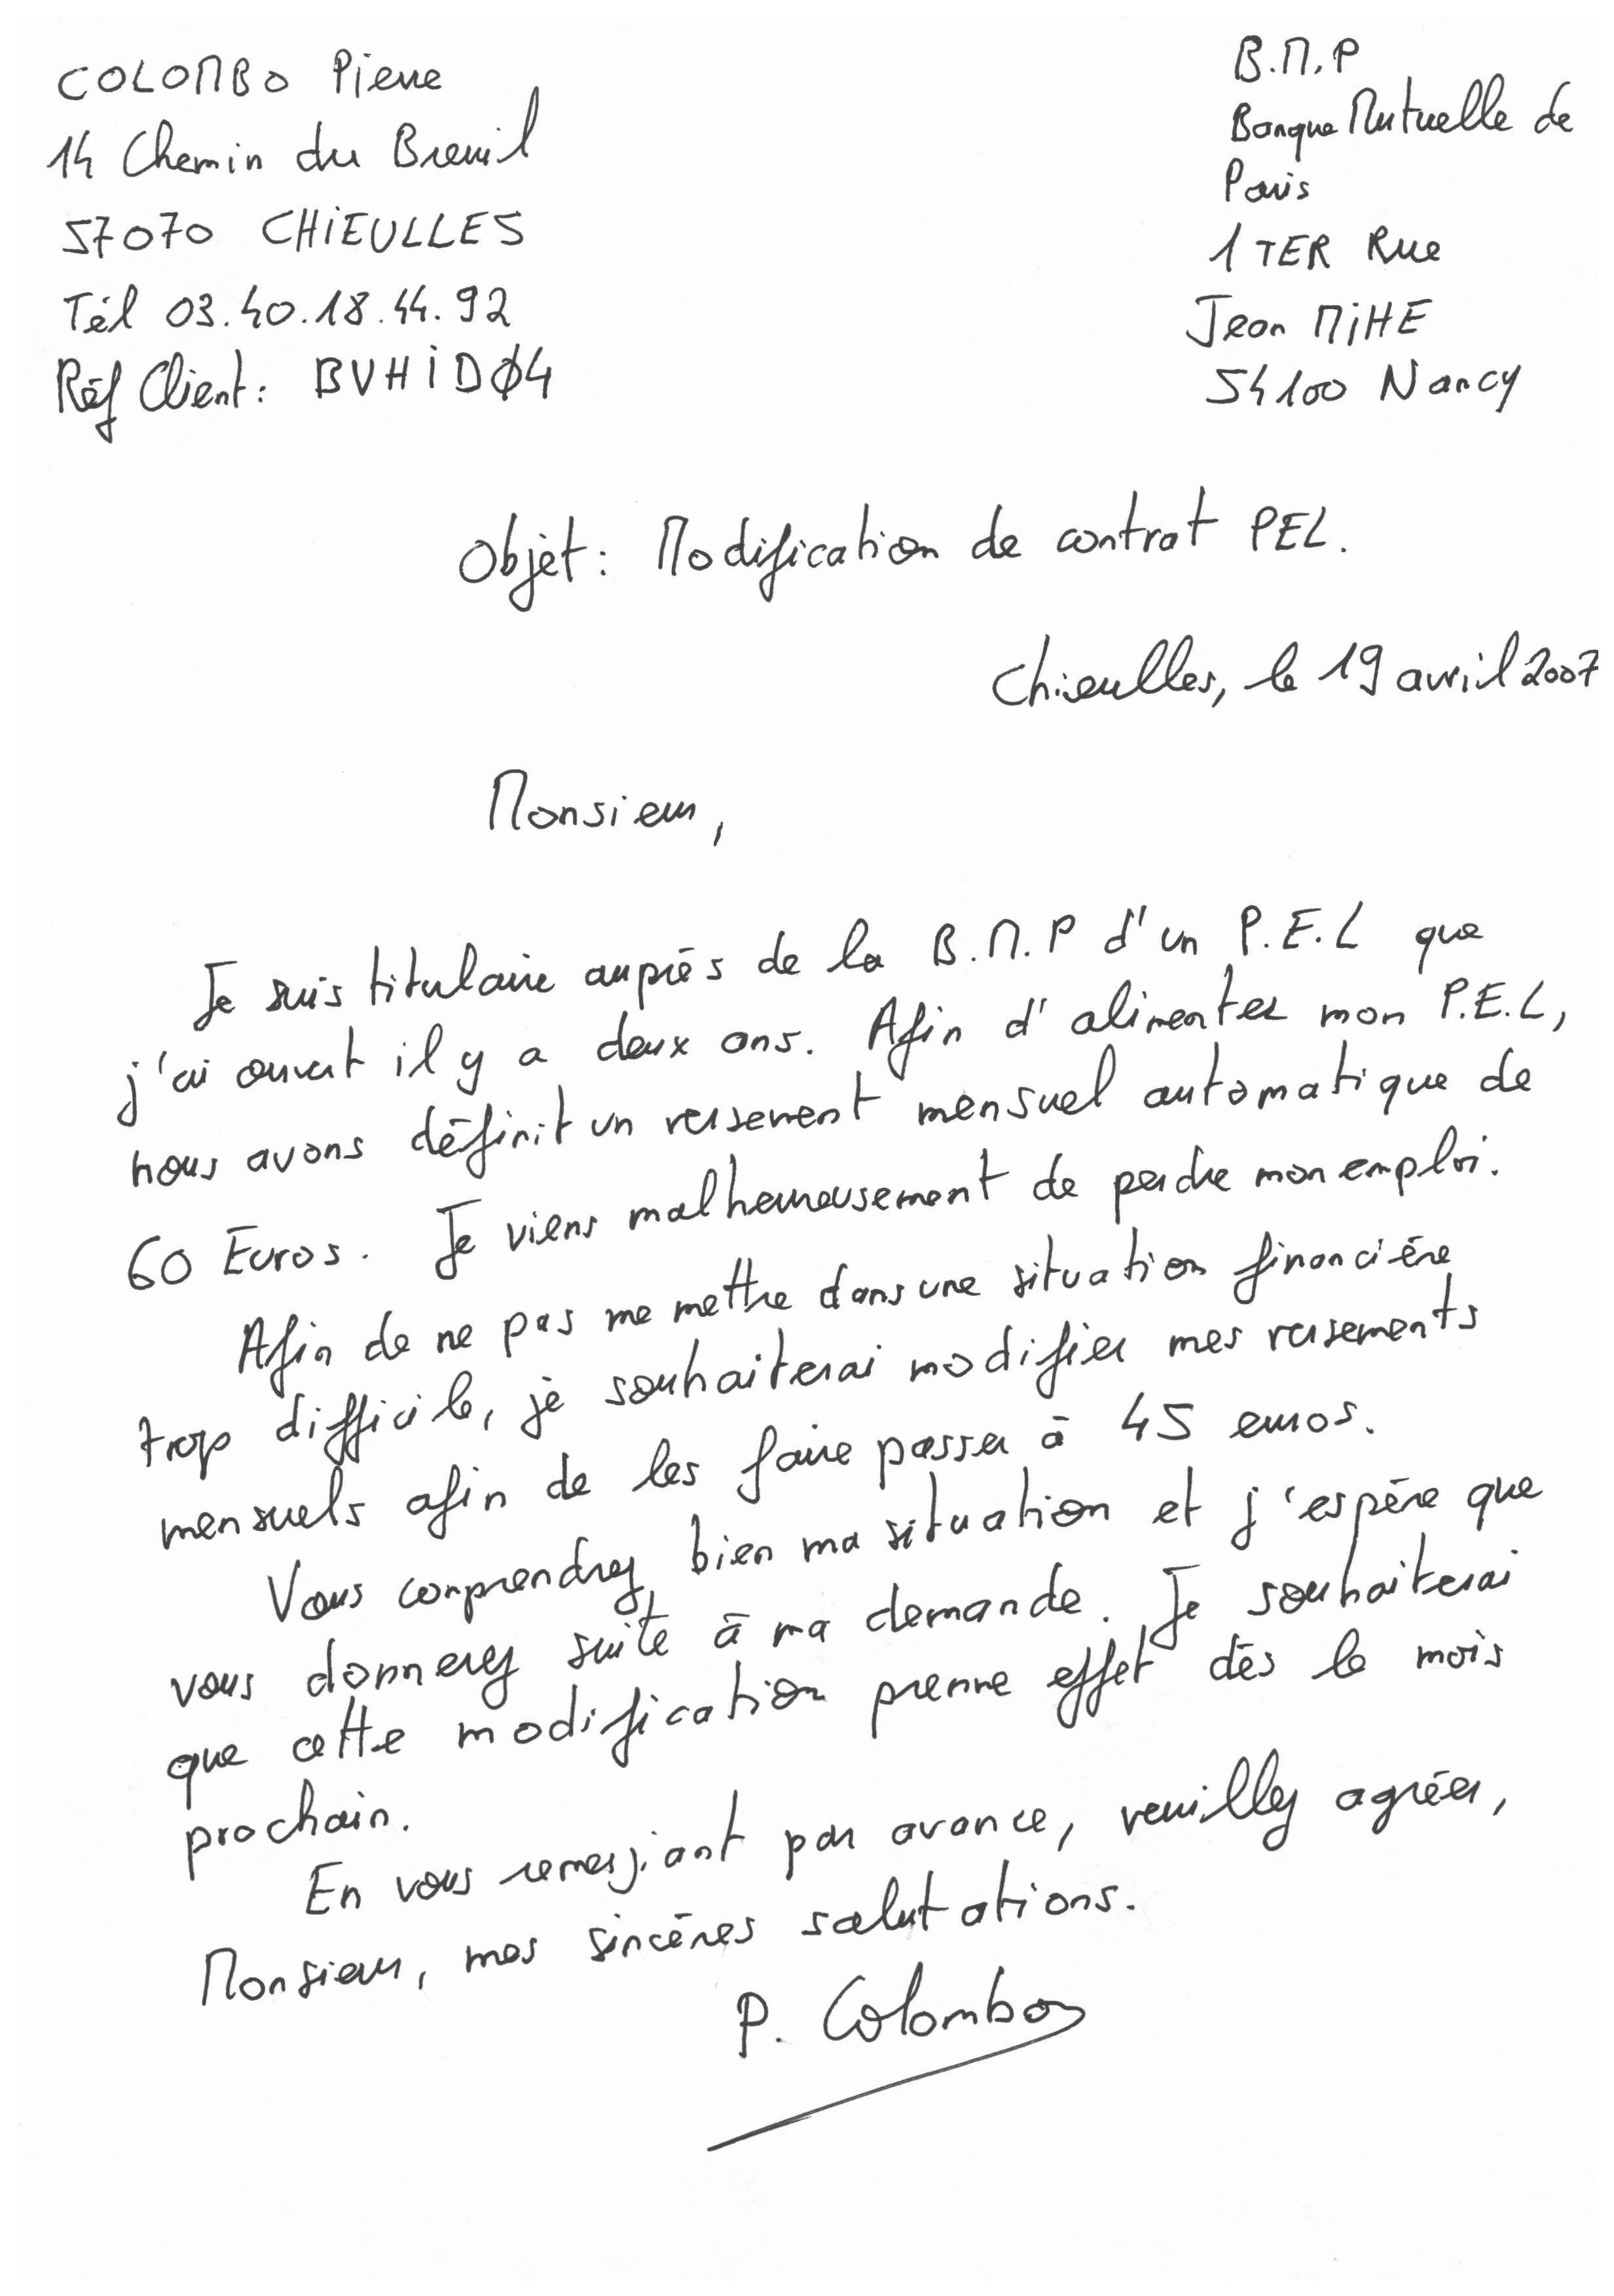 COLOMBO Pierre
14 Chemin du Breuil
57070 CHIEULLES
Tél 03.40.18.44.92
Réf Client : BVHID04
B.M.P
Banque Mutuelle de
Paris
1 TER Rue
Jean MIHE
54100 Nancy
Objet : Modification de contrat PEL.
Chieulles, le 19 avril 2007
Monsieur,
Je suis titulaire auprès de la B.M.P d'un P.E.L que
j'ai ouvert il y a deux ans. Afin d'alimenter mon P.E.L,
nous avons définit un versement mensuel automatique de
60 Euros. Je viens malheureusement de perdre mon emploi.
Afin de ne pas me mettre dans une situation financière
trop difficile, je souhaiterai modifier mes versements
mensuels afin de les faire passer à 45 euros.
Vous comprendrez bien ma situation et j'espère que
vous donnerez suite à ma demande. Je souhaiterai
que cette modification prenne effet dès le mois
prochain.
En vous remerçiant par avance, veuillez agréer,
Monsieur, mes sincères salutations.
P. Colombo